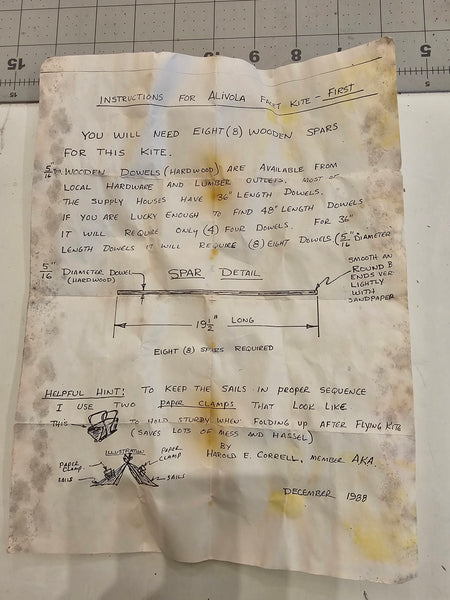 15
9
8
7
6
INSTRUCTIONS FOR ALIVOLA FACET KITE - FIRST
YOU WILL NEED EIGHT (8) WOODEN SPARS
FOR THIS KITE.
5/16" WOODEN DOWELS (HARDWOOD) ARE AVAILABLE FROM
LOCAL HARDWARE AND LUMBER OUTLETS. MOST OF
THE SUPPLY HOUSES HAVE 36" LENGTH DOWELS.
IF YOU ARE LUCKY ENOUGH TO FIND 48" LENGTH DOWELS
IT WILL REQUIRE ONLY (4) FOUR DOWELS. FOR 36"
LENGTH DOWELS IT WILL REQUIRE (8) EIGHT DOWELS. (5/16" DIAMETER
5/16" DIAMETER DOWEL
(HARDWOOD)
SPAR DETAIL
SMOOTH AN
ROUND B
ENDS VER
LIGHTLY
WITH
SANDPAPER
19 1/2" LONG
EIGHT (8) SPARS REQUIRED
HELPFUL HINT: TO KEEP THE SAILS IN PROPER SEQUENCE
I USE TWO PAPER CLAMPS THAT LOOK LIKE
THIS TO HOLD STURDY WHEN FOLDING UP AFTER FLYING KITE
(SAVES LOTS OF MESS AND HASSEL)
ILLUSTRATION
PAPER CLAMP
PAPER CLAMP
SAILS
SAILS
BY
HAROLD E. CORRELL, MEMBER AKA.
DECEMBER 1988